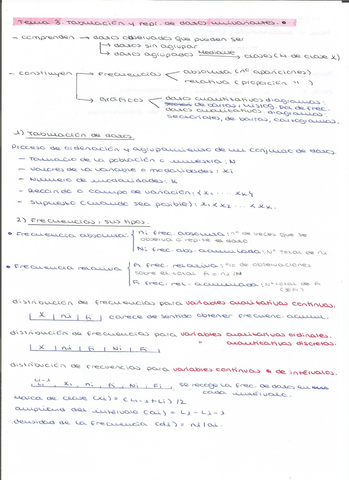 Tema 3. Tabulación y repr. de datos univariantes.
- comprenden → datos observados que pueden ser
→ datos sin agrupar
→ datos agrupados mediante clases (nº de clase k)
- constituyen → Frecuencias → absoluta (nº apariciones)
relativa (proporción " )
→ Gráficos → datos cuantitativos diagramas:
de barras, histog. pol. de frec.
datos cualitativos diagramas:
sectoriales, de barras, cartogramas.
1) Tabulación de datos.
Proceso de ordenación y agrupamiento de un conjunto de datos
- Tamaño de la población o muestra: N
- Valores de la variable o modalidades: xi
- Número de modalidades: k
- Recorrido o campo de variación: {x1 ... xk}
- Supuesto (cuando sea posible): x1 < x2 ... < xk
2) Frecuencias: sus tipos.
• Frecuencia absoluta: ni frec. absoluta: nº de veces que se
observa o repite el dato
Ni frec. abs. acumulada: nº total de ni
• Frecuencia relativa: fi frec. relativa: nº de observaciones
sobre el total fi = ni/N
Fi frec. rel. acumulada: nº total de fi
distribución de frecuencias para variables cualitativas
X | ni | fi | carece de sentido obtener frecuenc. acumul.
distribución de frecuencias para variables cualitativas ordinales.
" cuantitativas discretas.
X | ni | fi | Ni | Fi
distribución de frecuencias para variables continuas de intervalos.
Li-1 Xi, ni, fi, Ni, Fi, se recoge la frec. de datos en
cada intervalo.
marca de clase (xi) = (Li-1 + Li) / 2
amplitud del intervalo (ai) = Li - Li-1
densidad de la frecuencia (di) = ni / ai.